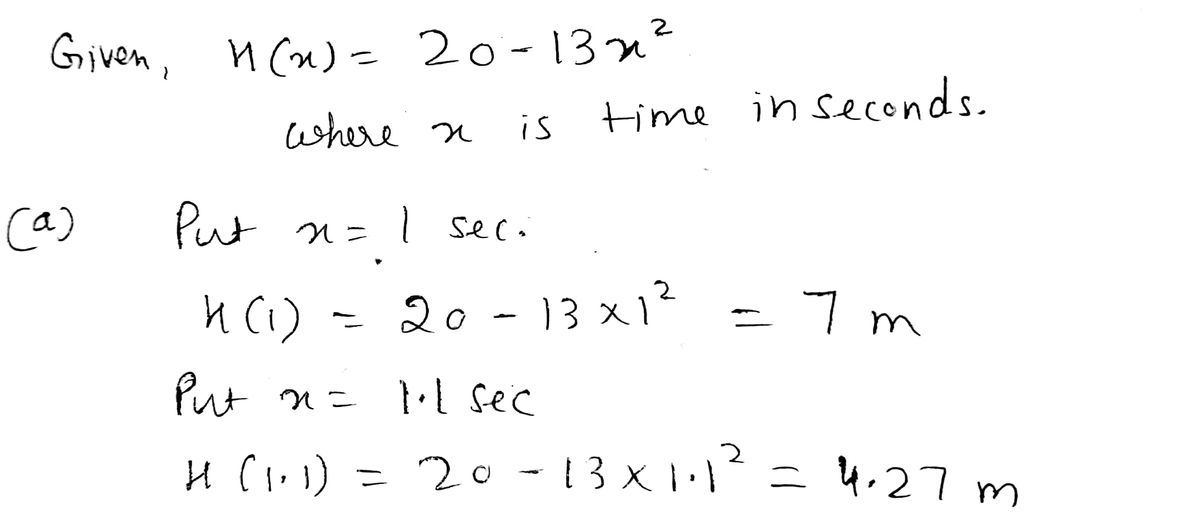 Given, H(x) = 20 - 13x²
where x is time in seconds.
(a) Put x = 1 sec.
H(1) = 20 - 13 × 1² = 7 m
Put x = 1.1 sec
H(1.1) = 20 - 13 × 1.1² = 4.27 m